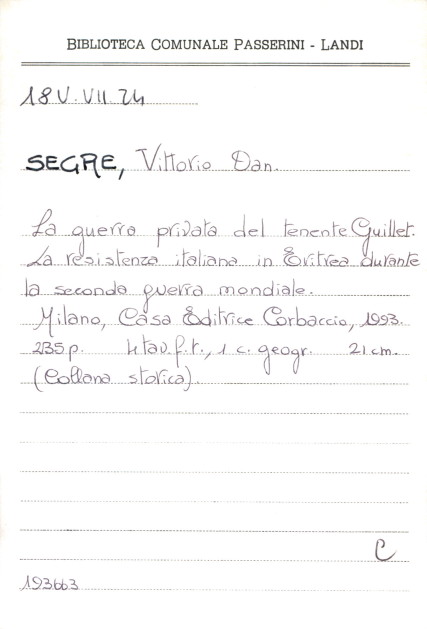 BIBLIOTECA COMUNALE PASSERINI - LANDI
18V.VII 24
SEGRE, Vittorio Dan.
La guerra privata del tenente Guillet.
La resistenza italiana in Eritrea durante
la seconda guerra mondiale.
Milano, Casa Editrice Corbaccio, 1993.
235 p. 4 tav. f.t., 1 c. geogr. 21 cm.
(Collana storica).
C
193663